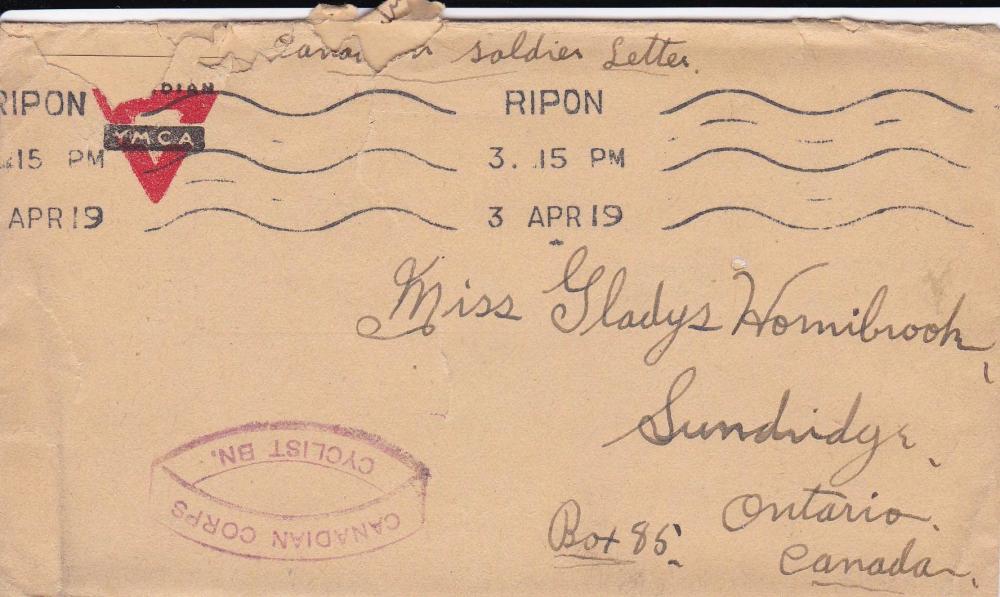 soldier Letter.
RIPON RIPON
DIAN
YMCA
15 PM 3. 15 PM
APR 19 3 APR 19
Miss Gladys Hornibrook,
Sundridge,
Ontario.
Box 85.
Canada.
CYCLIST BN.
CANADIAN CORPS